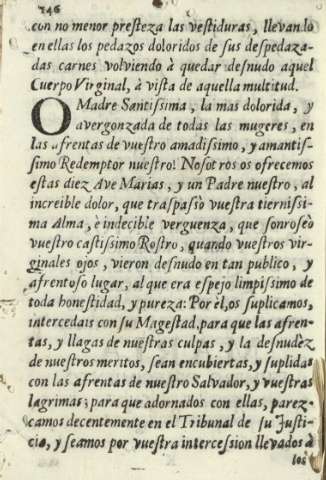 246
con no menor presteza las vestiduras, llevando
en ellas los pedazos doloridos de sus despedaza-
das carnes volviendo à quedar desnudo aquel
Cuerpo Virginal, à vista de aquella multitud.
O Madre Santissima, la mas dolorida, y
avergonzada de todas las mugeres, en
las afrentas de vuestro amadissimo, y amantis-
simo Redemptor nuestro! Nosotros os ofrecemos
estas diez Ave Marias, y un Padre nuestro, al
increible dolor, que traspasò vuestra ternissi-
ma Alma, è indecible verguenza, que sonroseò
vuestro castissimo Rostro, quando vuestros vir-
ginales ojos, vieron desnudo en tan publico, y
afrentoso lugar, al que era espejo limpissimo de
toda honestidad, y pureza: Por èl, os suplicamos,
intercedais con su Magestad, para que las afren-
tas, y llagas de nuestras culpas, y la desnudèz
de nuestros meritos, sean encubiertas, y suplidas
con las afrentas de nuestro Salvador, y vuestras
lagrimas; para que adornados con ellas, parez-
camos decentemente en el Tribunal de su Justi-
cia, y seamos por vuestra intercession llevados à
los